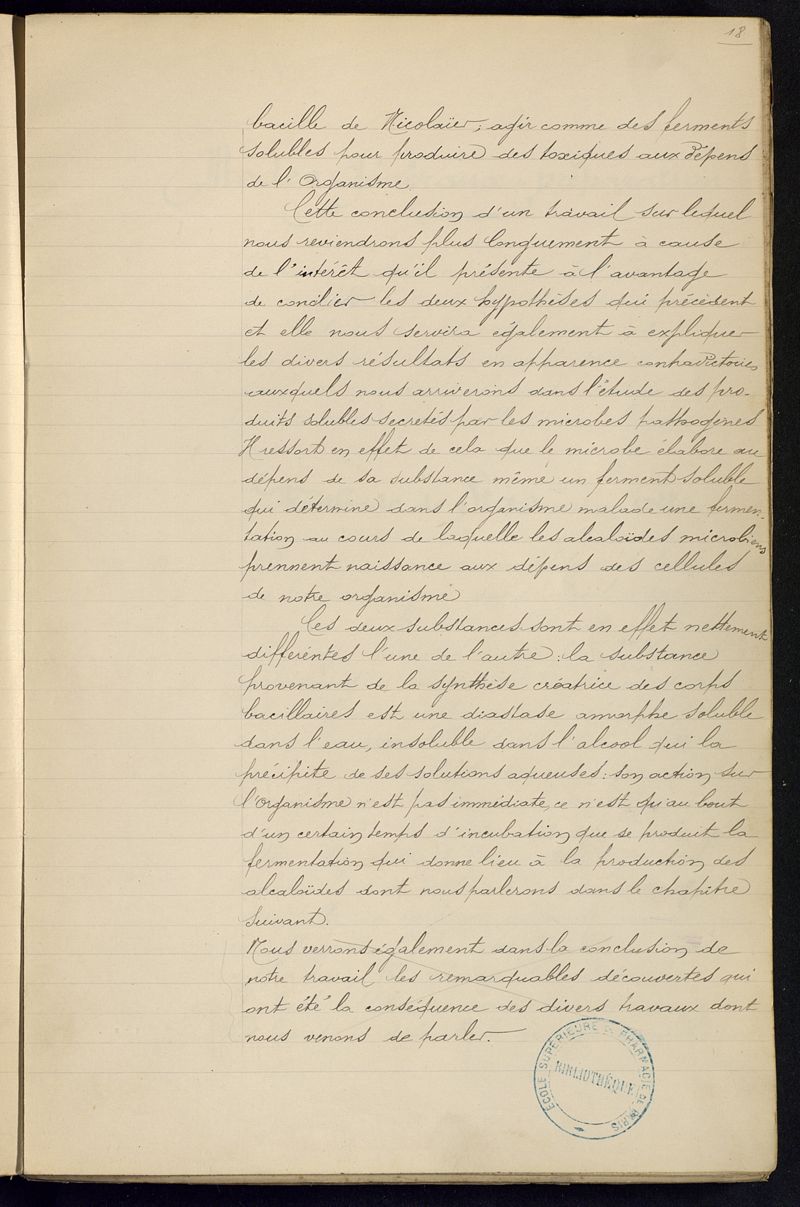 18
bacille de Nicolaïer, agir comme des ferments
solubles pour produire des toxiques aux dépens
de l'Organisme
Cette conclusion d'un travail sur lequel
nous reviendrons plus longuement à cause
de l'intérêt qu'il présente à l'avantage
de concilier les deux hypothèses qui précèdent
et elle nous servira également à expliquer
les divers résultats en apparence contradictoires
auxquels nous arriverons dans l'étude des pro-
duits solubles secretés par les microbes pathogènes
Il ressort en effet de cela que le microbe élabore au
dépens de sa substance même un ferment soluble
qui détermine dans l'organisme malade une fermen-
tation au cours de laquelle les alcaloïdes microbiens
prennent naissance aux dépens des cellules
de notre organisme
Ces deux substances sont en effet nettement
différentes l'une de l'autre : la substance
provenant de la synthèse créatrice des corps
bacillaires est une diastase amorphe soluble
dans l'eau, insoluble dans l'alcool qui la
précipite de ses solutions aqueuses : son action sur
l'Organisme n'est pas immédiate, ce n'est qu'au bout
d'un certain temps d'incubation que se produit la
fermentation qui donne lieu à la production des
alcaloïdes dont nous parlerons dans le chapitre
suivant.
Nous verrons également dans la conclusion de
notre travail les remarquables découvertes qui
ont été la conséquence des divers travaux dont
nous venons de parler.
ECOLE SUPÉRIEURE DE PHARMACIE DE PARIS
BIBLIOTHÈQUE